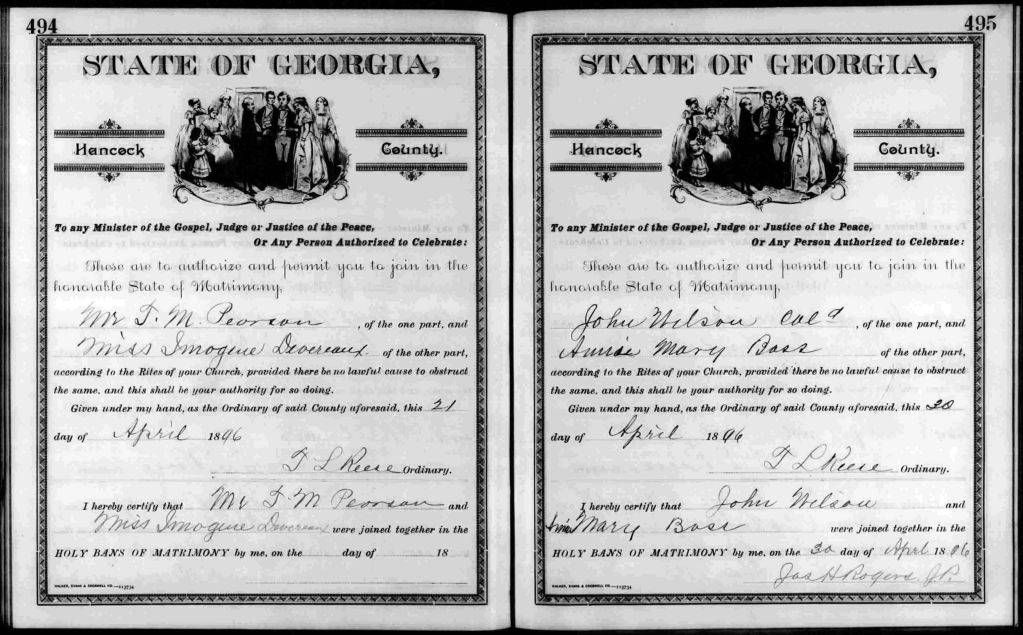 494
STATE OF GEORGIA,
Hancock County.
To any Minister of the Gospel, Judge or Justice of the Peace,
Or Any Person Authorized to Celebrate:
These are to authorize and permit you to join in the
honorable State of Matrimony,
Mr T. M. Pearson, of the one part, and
Miss Imogene Devereaux of the other part,
according to the Rites of your Church, provided there be no lawful cause to obstruct
the same, and this shall be your authority for so doing.
Given under my hand, as the Ordinary of said County aforesaid, this 21
day of April 1896
T L Reese Ordinary.
I hereby certify that Mr T. M Pearson and
Miss Imogene Devereaux were joined together in the
HOLY BANS OF MATRIMONY by me, on the day of 18
WALKER, EVANS & COGSWELL CO.—113734
495
STATE OF GEORGIA,
Hancock County.
To any Minister of the Gospel, Judge or Justice of the Peace,
Or Any Person Authorized to Celebrate:
These are to authorize and permit you to join in the
honorable State of Matrimony,
John Wilson Cold, of the one part, and
Mary Bass of the other part,
according to the Rites of your Church, provided there be no lawful cause to obstruct
the same, and this shall be your authority for so doing.
Given under my hand, as the Ordinary of said County aforesaid, this
day of April 1896
T L Reese Ordinary.
I hereby certify that John Wilson and
Mary Bass were joined together in the
HOLY BANS OF MATRIMONY by me, on the 30 day of April 1896
Jas H Rogers J.P.
WALKER, EVANS & COGSWELL CO.—113734